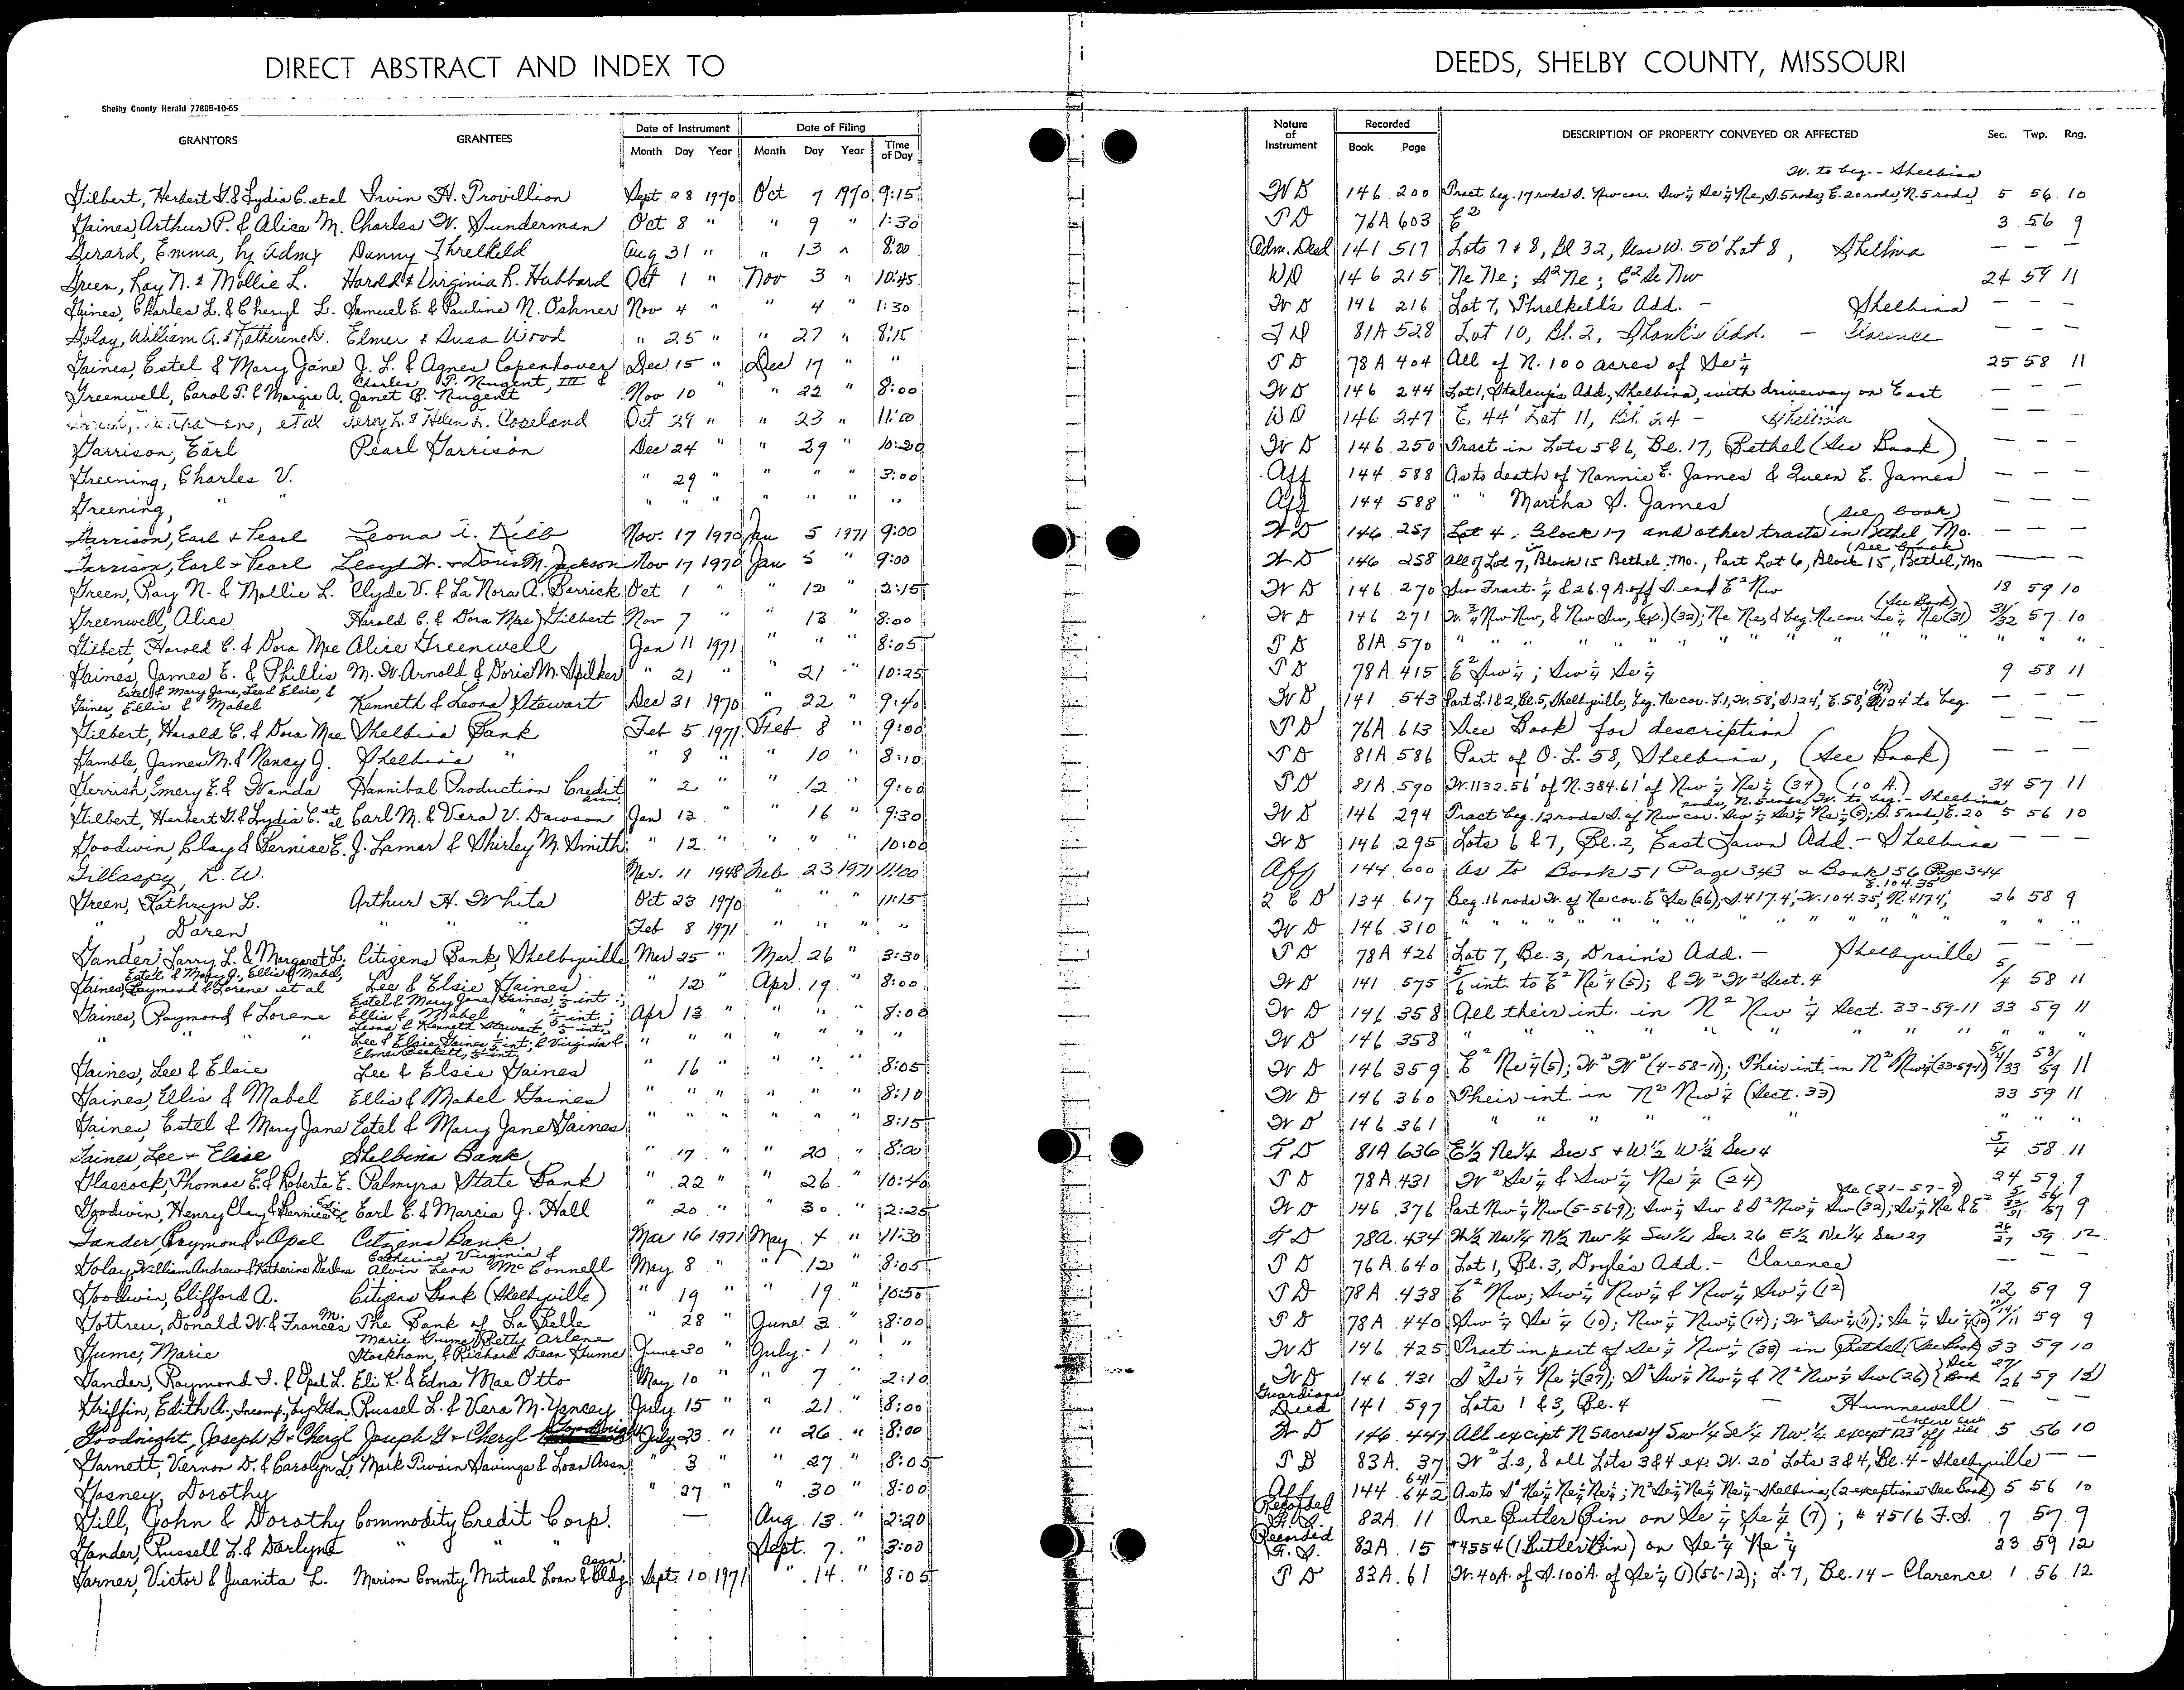 DIRECT ABSTRACT AND INDEX TO
DEEDS, SHELBY COUNTY, MISSOURI
Shelby County Herald 7780B-10-65
GRANTORS GRANTEES Date of Instrument Month Day Year Date of Filing Month Day Year Time of Day
Nature of Instrument Recorded Book Page DESCRIPTION OF PROPERTY CONVEYED OR AFFECTED Sec. Twp. Rng.
W. to beg. - Shelbina
Gilbert, Herbert G. & Lydia C. et al Irvin H. Provillion Sept 28 1970 Oct 7 1970 9:15 W D 146 200 Tract beg. 17 rods S. Nw cor. Sw¼ Se¼ Ne, S. 5 rods, E. 20 rods, N. 5 rods, 5 56 10
Gaines, Arthur P. & Alice M. Charles W. Sunderman Oct 8 " " 9 " 1:30 T D 76A 603 E² 3 56 9
Gerard, Emma, by Admx Danny Threlkeld Aug 31 " " 13 " 8:20 Adm. Deed 141 517 Lots 7 & 8, Bl 32, less W. 50' Lot 8, Shelbina — — —
Green, Ray N. & Mollie L. Harold & Virginia R. Hubbard Oct 1 " Nov 3 " 10:45 WD 146 215 Ne Ne; S² Ne; E² Se Nw 24 59 11
Gaines, Charles L. & Cheryl L. Samuel E. & Pauline N. Oshner Nov 4 " " 4 " 1:30 W D 146 216 Lot 7, Threlkeld's Add. - Shelbina — — —
Golay, William A. & Katherine D. Elmer & Susa Wood " 25 " " 27 " 8:15 T D 81A 528 Lot 10, Bl. 2, Shank's Add. - Clarence — — —
Gaines, Estel & Mary Jane J. L. & Agnes Copenhaver Dec 15 " Dec 17 " " T D 78A 404 All of N. 100 acres of Se¼ 25 58 11
Greenwell, Carol T. & Margie A. Charles P. Nugent, III & Janet B. Nugent Nov 10 " 22 " 8:00 W D 146 244 Lot 1, Stalcup's Add., Shelbina, with driveway on East — — —
et al Leroy L. & Helen L. Copeland Oct 29 " " 23 " 11:00 WD 146 247 E. 44' Lot 11, Bl. 24 - Shelbina — — —
Garrison, Earl Pearl Garrison Dec 24 " " 29 " 10:20 W D 146 250 Tract in Lots 5 & 6, Bl. 17, Bethel (See Book) — — —
Greening, Charles V. " 29 " " " " 3:00 Aff 144 588 As to death of Nannie E. James & Queen E. James — — —
Greening, " " " " " " " " " Aff 144 588 " " Martha S. James — — —
Garrison, Earl & Pearl Leona A. Kilb Nov. 17 1970 Jan 5 1971 9:00 W D 146 257 Lot 4, Block 17 and other tracts in Bethel, Mo. (See book) — —
Garrison, Earl & Pearl Lloyd W. & Doris M. Jackson Nov 17 1970 Jan 5 " 9:00 W D 146 258 All of Lot 7, Block 15 Bethel, Mo., Part Lot 6, Block 15, Bethel, Mo (See Book) — — —
Green, Ray N. & Mollie L. Clyde V. & La Nora A. Barrick Oct 1 " " 12 " 2:15 W D 146 270 Sw Fract. ¼ & 26.9 A off S. end E² Nw 18 59 10
Greenwell, Alice Harold C. & Dora Mae Gilbert Nov 7 " " 13 " 8:00 W D 146 271 W. ¾ Nw Nw, & Nw Sw, (ex.) (32); Ne Ne, & beg. Ne cor. Se¼ Ne (31) (See Book) 31/32 57 10
Gilbert, Harold C. & Dora Mae Alice Greenwell Jan 11 1971 " " " 8:05 T D 81A 570 " " " " " " " " " " "
Gaines, James E. & Phillis M. W. Arnold & Doris M. Spilker " 21 " " 21 " 10:25 T D 78A 415 E² Sw¼; Sw¼ Se¼ 9 58 11
Estel & Mary Jane, Lee & Elsie, &
Gaines, Ellis & Mabel Kenneth & Leona Stewart Dec 31 1970 " 22 " 9:40 W D 141 543 Part L. 1 & 2, Bl. 5, Shelbyville, beg. Ne cor. L. 1, W. 58', S. 124', E. 58', (N) 124' to beg. — — —
Gilbert, Harold C. & Dora Mae Shelbina Bank Feb 5 1971 Feb 8 " 9:00 T D 76A 613 See Book for description — — —
Gamble, James M. & Nancy J. Shelbina " " 8 " " 10 " 8:10 T D 81A 586 Part of O. L. 58, Shelbina, (See Book) — — —
Gerrish, Emery E. & Wanda Hannibal Production Credit Assn. " 2 " " 12 " 9:00 T D 81A 590 W. 1132.56' of N. 384.61' of Nw¼ Ne¼ (34) (10 A.) 34 57 11
Gilbert, Herbert G. & Lydia C. et al Carl M. & Vera V. Dawson Jan 12 " " 16 " 9:30 W D 146 294 Tract beg. 12 rods S. of Nw cor. Sw¼ Se¼ Ne¼ (5); S. 5 rods, E. 20 rods, N. 5 rods, W. to beg. - Shelbina 5 56 10
Goodwin, Clay & Bernice E. J. Lamar & Shirley M. Smith " 12 " " " " 10:00 W D 146 295 Lots 6 & 7, Bl. 2, East Lawn Add. - Shelbina — — —
Gillaspy, R. W. Mar. 11 1948 Feb 23 1971 11:00 Aff 144 600 As to Book 51 Page 343 & Book 56 Page 344
Green, Kathryn L. Arthur H. White Oct 23 1970 " " " 11:15 2 C D 134 617 Beg. 16 rods W. of Ne cor. E² Se (26); S. 417.4', W. 104.35', N. 417.4', E. 104.35' 26 58 9
" , Daren " " " Feb 8 1971 " " " " W D 146 310 " " " " " " " " " " "
Gander, Larry L. & Margaret L. Citizens Bank, Shelbyville Mar 25 " Mar. 26 " 3:30 T D 78A 426 Lot 7, Bl. 3, Drain's Add. - Shelbyville — — —
Estel & Mary J., Ellis & Mabel,
Gaines, Raymond & Lorene et al Lee & Elsie Gaines " 12 " Apr. 19 " 8:00 W D 141 575 5/6 int. to E² Ne¼ (5); & W² W² Sect. 4 5/4 58 11
Gaines, Raymond & Lorene Estel & Mary Jane Gaines, ⅕ int.; Ellis & Mabel " ⅕ int.; Leona & Kenneth Stewart, ⅕ int.; Apr 13 " " " " 8:00 W D 146 358 All their int. in N² Nw¼ Sect. 33-59-11 33 59 11
" " " Lee & Elsie Gaines ⅕ int; & Virginia & Elmer Beckett, ⅕ int. " " " " " " " W D 146 358 " " " " " " " " " "
Gaines, Lee & Elsie Lee & Elsie Gaines " 16 " " " " 8:05 W D 146 359 E² Ne¼ (5); W² W² (4-58-11); Their int. in N² Nw¼ (33-59-11) 5/4/33 58/59 11
Gaines, Ellis & Mabel Ellis & Mabel Gaines " " " " " " 8:10 W D 146 360 Their int. in N² Nw¼ (Sect. 33) 33 59 11
Gaines, Estel & Mary Jane Estel & Mary Jane Gaines " " " " " " 8:15 W D 146 361 " " " " " " " "
Gaines, Lee & Elsie Shelbina Bank " 17 " " 20 " 8:00 T D 81A 636 E½ Ne¼ Sec 5 & W½ W½ Sec 4 5/4 58 11
Glascock, Thomas E. & Roberta E. Palmyra State Bank " 22 " " 26 " 10:40 T D 78A 431 W² Se¼ & Sw¼ Ne¼ (24) 24 59 9
Goodwin, Henry Clay & Bernice Edith Earl E. & Marcia J. Hall " 20 " " 30 " 2:25 W D 146 376 Part Nw¼ Nw (5-56-9); Sw¼ Sw & S² Nw¼ Sw (32); Se¼ Ne & E² Se (31-57-9) 5/32/31 56/57 9
Gander, Raymond & Opal Citizens Bank Mar 16 1971 May 4 " 11:30 T D 78A 434 W½ Nw¼ N½ Nw¼ Sw¼ Sec. 26 E½ Ne¼ Sec 27 26/27 59 12
Golay, William Andrew & Katherine Darlene Catherine Virginia & Alvin Leon McConnell May 8 " " 12 " 8:05 T D 76A 640 Lot 1, Bl. 3, Doyle's Add. - Clarence — — —
Goodwin, Clifford A. Citizens Bank (Shelbyville) " 19 " " 19 " 10:50 T D 78A 438 E² Nw; Sw¼ Nw¼ & Nw¼ Sw¼ (12) 12 59 9
Gottreu, Donald W. & Frances M. The Bank of La Belle " 28 " June 3 " 8:00 T D 78A 440 Sw¼ Se¼ (10); Nw¼ Nw¼ (14); W² Sw¼ (11); Se¼ Se¼ (10) 10/14/11 59 9
Gume, Marie Marie Gume, Betty Arlene Stockham, & Richard Dean Gume June 30 " July 1 " " W D 146 425 Tract in part of Se¼ Nw¼ (33) in Bethel (See Book) 33 59 10
Gander, Raymond I. & Opal L. Eli K. & Edna Mae Otto May 10 " " 7 " 2:10 W D 146 431 S² Se¼ Ne¼ (27); S² Sw¼ Nw¼ & N² Nw¼ Sw (26) (See Book) 27/26 59 12
Griffin, Edith A., Incomp., by Gdn. Russel L. & Vera M. Yancey July 15 " " 21 " 8:00 Guardians Deed 141 597 Lots 1 & 3, Bl. 4 - Hunnewell — —
Goodnight, Joseph G & Cheryl Joseph G & Cheryl Goodnight July 23 " " 26 " 8:00 W D 146 447 All except N 5 acres of Sw¼ Se¼ Nw¼ except 123' off 5 56 10
Garnett, Vernon D. & Carolyn L. Mark Twain Savings & Loan Assn. " 3 " " 27 " 8:05 T D 83A 37 W² L. 2, & all Lots 3 & 4 ex. W. 20' Lots 3 & 4, Bl. 4 - Shelbyville — —
Gosney, Dorothy " 27 " " 30 " 8:00 Aff 144 641 642 As to S² Ne¼ Ne¼ Ne¼; N² Se¼ Ne¼ Ne¼ - Shelbina, (2 exceptions See Book) 5 56 10
Gill, John & Dorothy Commodity Credit Corp. — Aug. 13 " 2:20 Recorded F. S. 82A 11 One Butler Bin on Se¼ Se¼ (7); # 4516 F. S. 7 57 9
Gander, Russell L. & Darlyne " " " Sept. 7 " 3:00 Recorded F. S. 82A 15 #4554 (1 Butler Bin) on Se¼ Ne¼ 23 59 12
Garner, Victor & Juanita L. Marion County Mutual Loan & Bldg. Assn. Sept. 10 1971 " 14 " 8:05 T D 83A 61 W. 40A. of S. 100 A. of Se¼ (1) (56-12); L. 7, Bl. 14 - Clarence 1 56 12